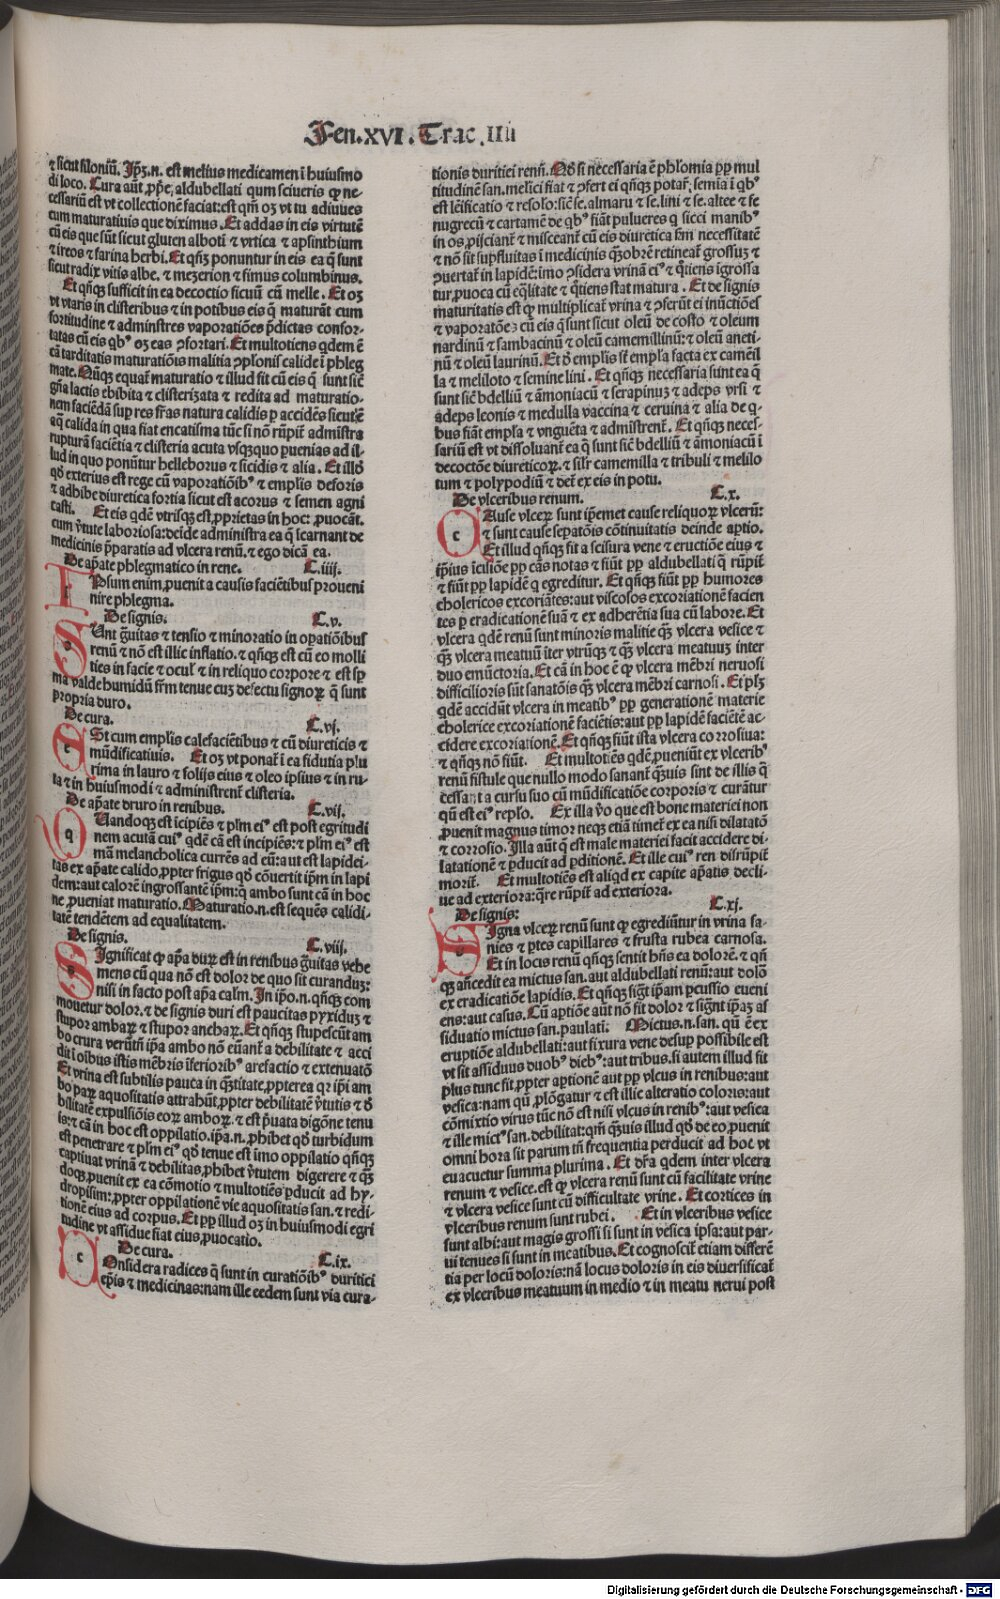 Fen.xvi.Trac.IIII
⁊ sicut filoniū. Ip̄ꝫ.n. est melius medicamen ī huiusmo
di loco. Cura aūt ꝓpe, aldubellati qum sciueris ꝙ ne
cessariū est vt collectionē faciat: est qm̄ oꝫ vt tu adiuues
cum maturatiuis que diximus. Et addas in eis virtutē
cū eis que sūt sicut gluten alboti ⁊ vrtica ⁊ apsinthium
⁊ ireos ⁊ farina herbi. Et qn̄ꝫ ponuntur in eis ea q̄ sunt
sicut radix vitis albe. ⁊ mezerion ⁊ fimus columbinus.
Et qn̄qꝫ sufficit in ea decoctio sicuū cum melle. Et oꝫ
vt vtaris in clisteribus ⁊ in potibus eis q̄ maturāt cum
fortitudine ⁊ adminstres vaporatiōes p̄dictas confor-
tatas cū eis qbꝰ oꝫ eas ꝯfortari. Et multotiens qdem ē
cā tarditatis maturatiōis malitia ꝯplonīs calide ī phleg
mate. Nūqꝫ equat̄ maturatio ⁊ illud fit cū eis q̄ sunt sic̄
gn̄a lactis ebibita ⁊ clisterizata ⁊ redita ad maturatio-
nem faciēdā sup res fr̄as natura calidis p accidēs sicut ē
aq̄ calida in qua fiat encatisma tūc si nō rūpit̄ admīstra
rupturā faciētia ⁊ clisteria acuta vsqꝫquo puenias ad il-
lud in quo ponūtur helleborus ⁊ sicidis ⁊ alia. Et illd̄
qd̄ exterius est rege cū vaporatiōibꝰ ⁊ emplīs deforis
⁊ adhibe diuretica fortia sicut est acorus ⁊ semen agni
casti. Et eis qdē vtrisqꝫ est ꝓprietas in hoc: ꝓuocāt.
cum v̄tute laboriosa: deīde administra ea q̄ īcarnant de
medicinis p̄paratis ad vlcera renū. ⁊ ego dicā ea.
De ap̄ate phlegmatico in rene. C.iiij.
IPsum enim ꝓuenit a causis faciētibus ꝓueni
nire phlegma.
De signis. C.v.
SUnt ḡuitas ⁊ tensio ⁊ minoratio in opatiōibus
renū ⁊ nō est illic inflatio. ⁊ qn̄qꝫ est cū eo molli
ties in facie ⁊ ocul̄ ⁊ in reliquo corpore ⁊ est sp̄
ma valde humidū fr̄m tenue cuꝫ defectu signoꝝ q̄ sunt
propria duro.
De cura. C.vj.
ESt cum emplīs calefaciētibus ⁊ cū diureticis ⁊
mūdificatiuis. Et oꝫ vt ponat̄ ī ea fidutia plu
rima in lauro ⁊ folijs eius ⁊ oleo ipsius ⁊ in ru-
ta ⁊ in huiusmodi ⁊ administrent̄ clisteria.
De ap̄ate druro in renibus. C.vij.
QUandoqꝫ est īcipiēs ⁊ plm̄ eiꝰ est post egritudi
nem acutā cuiꝰ qdē cā est incipiēs: ⁊ plm̄ eiꝰ est
mā melancholica currēs ad eū: aut est lapidei-
tas ex ap̄ate calido, ꝓpter frigus qd̄ cōuertit ip̄m in lapi
dem: aut calorē ingrossantē ip̄m: q̄ ambo sunt cā in hoc
ne ꝓueniat maturatio. Maturatio.n. est sequēs calidi-
tatē tendētem ad equalitatem.
De signis. C.viij.
SIgnificat ꝙ ap̄a durꝫ est in renibus ḡuitas vehe
mens cū qua nō est dolor de quo sit curanduꝫ:
nisi in facto post ap̄a calm̄. In ip̄o.n. qn̄qꝫ com
mouetur dolor. ⁊ de signis duri est paucitas pyxiduꝫ ⁊
stupor ambaꝝ ⁊ stupor anchaꝝ. Et qn̄qꝫ stupescūt am
bo crura verūtn̄ ip̄a ambo nō euāt̄ a debilitate ⁊ acci
dit ī oībus istis mēbris īferioribꝰ arefactio ⁊ extenuatō
Et vrina est subtilis pauca in q̄ꝫtitate, ꝓpterea qr ip̄i am
bo paꝝ aquositatis attrabūt, ꝓpter debilitatē v̄tutis ⁊ d̄
bilitatē expulsiōis eoꝝ amboꝝ. ⁊ est p̄uata digōne tenu
is: ⁊ cā in hoc est oppilatio. ip̄a.n. ꝓhibet qd̄ turbidum
est penetrare ⁊ plm̄ eiꝰ qd̄ tenue est imo oppilatio qn̄qꝫ
captiuat vrinā ⁊ debilitas, ꝓhibet v̄tutem digerere ⁊ q̄ꝫ
doqꝫ ꝓuenit ex ea cōmotio ⁊ multotiēs pducit ad hy-
dropisim: ꝓpter oppilationē vie aquositatis san. ⁊ redi-
tionē eius ad corpus. Et pp illud oꝫ in huiusmodi egri
tudine vt assidue fiat eius ꝓuocatio.
De cura. C.ix.
COnsidera radices q̄ sunt in curatiōibꝰ duritici
ep̄is ⁊ medicinas: nam ille eedem sunt via cura-
tionis duritici renū. Nō si necessaria ē phlomia pp mul
titudinē san. melici fiat ⁊ ꝯfert ei qn̄qꝫ potat̄, semia ī qbꝰ
est leīficatio ⁊ resolo: sic̄ se. almaru ⁊ se. lini ⁊ se. altee ⁊ fe
nugrecū ⁊ cartamē de qbꝰ fiāt pulueres q̄ sicci manibꝰ
in os, ꝓijciant̄ ⁊ misceant̄ cū eis diuretica fm̄ necessitatē
⁊ nō sit supfluitas ī medicinis q̄ꝫobrē retineat̄ grossuꝫ ⁊
ꝯuertat̄ in lapidē: imo ꝯsidera vrinā eiꝰ ⁊ q̄tiens īgrossa
tur, ꝓuoca cū eq̄litate ⁊ q̄tiens stat matura. Et de signis
maturitatis est ꝙ multiplicat̄ vrina ⁊ ꝯferūt ei inūctiōes
⁊ vaporatōeꝫ cū eis q̄ sunt sicut oleū de costo ⁊ oleum
nardinū ⁊ sambacinū ⁊ oleū camemillinū: ⁊ oleū aneti-
nū ⁊ oleū laurinū. Et d̄ emplīs sr̄ empla facta ex cameīl
la ⁊ meliloto ⁊ semine lini. Et qn̄qꝫ necessaria sunt ea q̄
sunt sic̄ bdelliū ⁊ āmoniacū ⁊ serapinuꝫ ⁊ adeps vrsi ⁊
adeps leonis ⁊ medulla vaccina ⁊ ceruina ⁊ alia de q-
bus fiāt empla ⁊ vnguēta ⁊ admīstrent̄. Et qn̄qꝫ neces-
sariū est vt dissoluant̄ ea q̄ sunt sic̄ bdelliū ⁊ āmoniacū ī
decoctōe diureticoꝝ. ⁊ silr̄ camemilla ⁊ tribuli ⁊ melilo
tum ⁊ polypodiū ⁊ det̄ ex eis in potu.
De vlceribus renum. C.x.
CAuse vlceꝝ sunt ip̄emet cause reliquoꝝ vlcerū:
⁊ sunt cause sepatōis cōtinuitatis deinde aptio.
Et illud qn̄qꝫ fit a scisura vene ⁊ eructiōe eius ⁊
ip̄ius īcisiōe pp cās notas ⁊ fiūt pp aldubellati q̄ rūpit̄
⁊ fiūt pp lapidē q̄ egreditur. Et qn̄qꝫ fiūt pp humores
cholericos excoriātes: aut viscosos excoriationē facien
tes p eradicationē suā ⁊ ex adherētia sua cū labore. Et
vlcera qdē renū sunt minoris malitie q̄ꝫ vlcera vesice ⁊
q̄ꝫ vlcera meatuū īter vtrūqꝫ ⁊ q̄ꝫ vlcera meatuuꝫ inter
duo emūctoria. Et cā in hoc ē ꝙ vlcera mēbri neruosi
difficilioris sūt sanatōis q̄ꝫ vlcera mēbri carnosi. Et plꝫ
qdē accidūt vlcera in meatibꝰ pp generationē materie
cholerice excoriationē faciētis: aut pp lapidē faciētē ac-
cidere excoriationē. Et qn̄qꝫ fiūt ista vlcera corrosiua:
⁊ qn̄qꝫ nō fiūt. Et multotiēs qdē, ꝓueniūt ex vlceribꝰ
renū fistule que nullo modo sanant̄ q̄ꝫuis sint de illis q̄
cessant a cursu suo cū mūdificatiōe corporis ⁊ curātur
qū est eiꝰ replo. Ex illa v̄o que est bone materiei non
ꝓuenit magnus timor neqꝫ etiā timet̄ ex ea nisi dilatatō
⁊ corrosio. Illa aūt q̄ est male materiei facit accidere di-
latationē ⁊ pducit ad pditionē. Et ille cuiꝰ ren disrūpit̄
morit̄. Et multotiēs est aliqd ex capite ap̄atis decli-
ue ad exteriora: q̄re rūpit̄ ad exteriora.
De signis: C.xj.
SIgna vlceꝝ renū sunt ꝙ egrediūtur in vrina sa-
nies ⁊ ptes capillares ⁊ frusta rubea carnosa.
Et in locis renū qn̄qꝫ sentit hn̄s ea dolorē. ⁊ qn̄
qꝫ an̄cedit ea mictus san. aut aldubellati renū: aut dolō
ex eradicatiōe lapidis. Et qn̄qꝫ sigt̄ ip̄am pcussio eueni
ens: aut casus. Cū aptiōe aūt nō fit dolor ⁊ signt̄ ip̄aꝫ as
siduatio mictus san. paulati: Mictus.n. san. qū ē ex
eruptiōe aldubellati: aut fixura vene desup possibile est
vt sit assiduus duobꝰ diebꝰ: aut tribus. si autem illud sit
plus tunc fit, ꝓpter aptionē aut pp vlcus in renibus: aut
vesica: nam qū ꝓlōgatur ⁊ est illic alteratio coloris: aut
cōmixtio virus tūc nō est nisi vlcus in renibꝰ: aut vesica
⁊ ille mictꝰ san. debilitat: qm̄ q̄ꝫuis illud qd̄ de eo, ꝓuenit
omni hora sit parum tn̄ frequentia perducit ad hoc vt
euacuetur summa plurima. Et dr̄a qdem inter vlcera
renum ⁊ vesice. est ꝙ vlcera renū sunt cū facilitate vrine
⁊ vlcera vesice sunt cū difficultate vrine. Et cortices in
vlceribus renum sunt rubei. Et in vlceribus vesice
sunt albi: aut magis grossi si sunt in vesica ipsa: aut par-
ui tenues si sunt in meatibus. Et cognoscit̄ etiam differē
tia per locū doloris: nā locus doloris in eis diuersificat̄
ex vlceribus meatuum in medio ⁊ in meatu nerui post
Digitalisierung gefördert durch die Deutsche Forschungsgemeinschaft - DFG